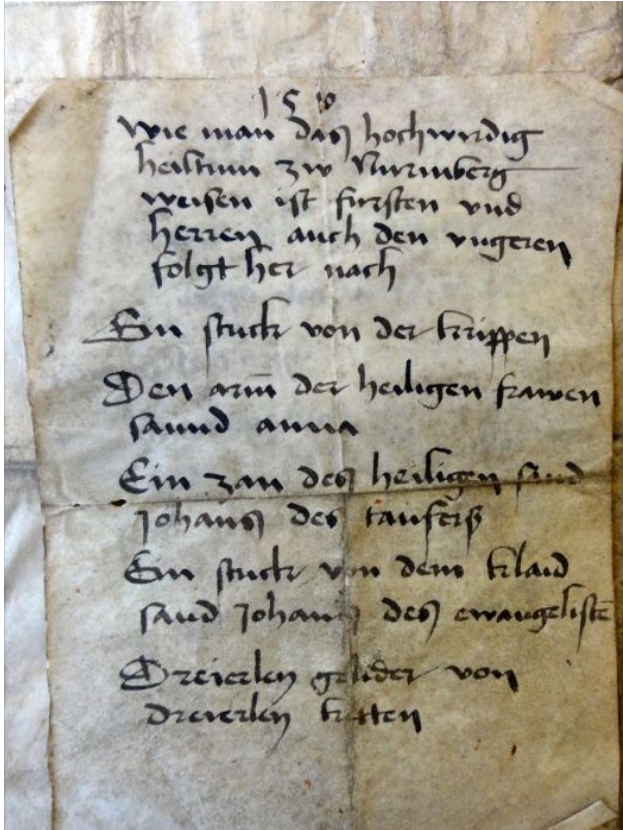 150
wie man das hochwirdig
heiltum zw Nurmberg
weisen ist fursten vnd
herren auch den vngeren
folgt her nach
Ein stuck von der krippen
Den arm der heiligen frawen
sannd anna
Ein zan des heiligen sand
Johanns des taufers
Ein stuck von dem klaid
sand Johanns des ewangeliste
Dreierley gelider von
dreierley ketten